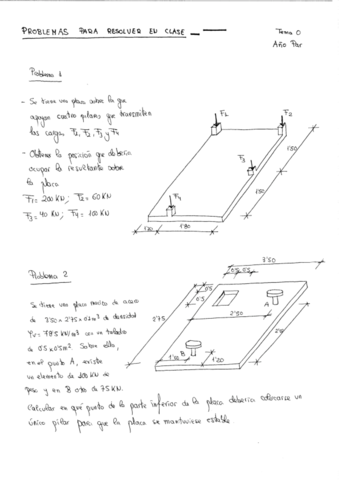 PROBLEMAS PARA RESOLVER EN CLASE
Tema 0
Año Par
Problema 1
- Se tiene una placa sobre la que
apoyan cuatro pilares que transmiten
las cargas F1, F2, F3 y F4
- Obtener la posición que debería
ocupar la resultante sobre
la placa
F1 = 200 KN; F2 = 60 KN
F3 = 40 KN; F4 = 100 KN
F1
F2
F3
F4
1'50
1'50
1'80
Problema 2
Se tiene una placa maciza de acero
de densidad
γ = 78'5 KN/m³ con un taladro
de 0'5 x 0'5 m². Sobre ella,
en el punto A, existe
un elemento de KN de
peso y en B otro de 75 KN.
Calcular en qué punto de la parte inferior de la placa debería colocarse un
único pilar para que la placa se mantuviese estable
3'50
0'5
0'5
2'75
A
B
1'20